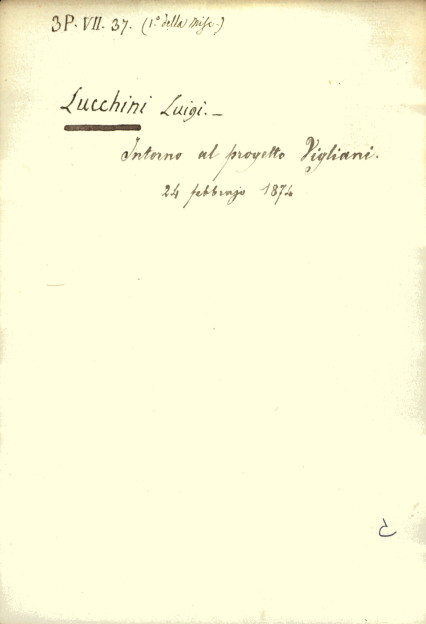 3P. VII. 37. (1.º della Misc.)
Lucchini Luigi. —
Intorno al progetto Vigliani.
24 febbrajo 1874